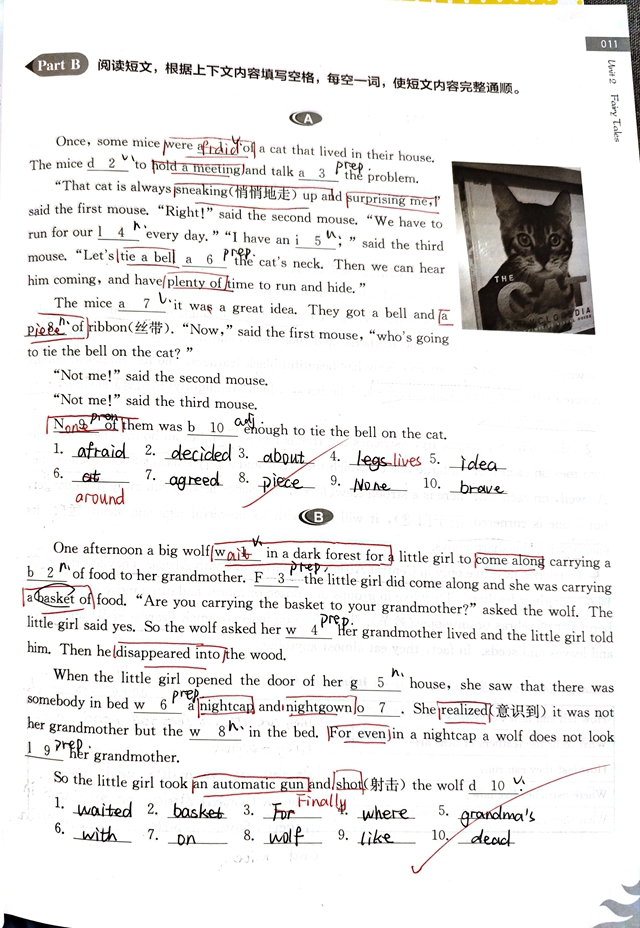 011
Unit 2 Fairy Tales
Part B 阅读短文，根据上下文内容填写空格，每空一词，使短文内容完整通顺。
A
Once, some mice were afrdid of a cat that lived in their house.
The mice d 2 v. to hold a meeting and talk a 3 prep. the problem.
"That cat is always sneaking(悄悄地走) up and surprising me,"
said the first mouse. "Right!" said the second mouse. "We have to
run for our l 4 n. every day." "I have an i 5 n.," said the third
mouse. "Let's tie a bell a 6 prep. the cat's neck. Then we can hear
him coming, and have plenty of time to run and hide."
The mice a 7 v. it was a great idea. They got a bell and a
piece n. of ribbon(丝带). "Now," said the first mouse, "who's going
to tie the bell on the cat?"
"Not me!" said the second mouse.
"Not me!" said the third mouse.
None pron. of them was b 10 adj. enough to tie the bell on the cat.
THE
CAT
1. afraid 2. decided 3. about 4. legs lives 5. idea
6. at 7. agreed 8. piece 9. None 10. brave
around
B
One afternoon a big wolf wait v. in a dark forest for a little girl to come along carrying a
b 2 n. of food to her grandmother. F 3 prep. the little girl did come along and she was carrying
a basket of food. "Are you carrying the basket to your grandmother?" asked the wolf. The
little girl said yes. So the wolf asked her w 4 prep. her grandmother lived and the little girl told
him. Then he disappeared into the wood.
When the little girl opened the door of her g 5 n. house, she saw that there was
somebody in bed w 6 prep. a nightcap and nightgown o 7 . She realized(意识到) it was not
her grandmother but the w 8 n. in the bed. For even in a nightcap a wolf does not look
l 9 prep. her grandmother.
So the little girl took an automatic gun and shot(射击) the wolf d 10 v.
1. waited 2. basket 3. For Finally 4. where 5. grandma's
6. with 7. on 8. wolf 9. like 10. dead